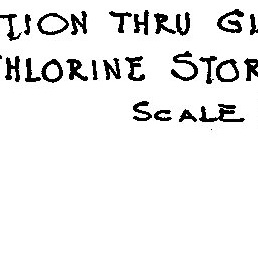 TION THRU GL
HLORINE STOR
SCALE